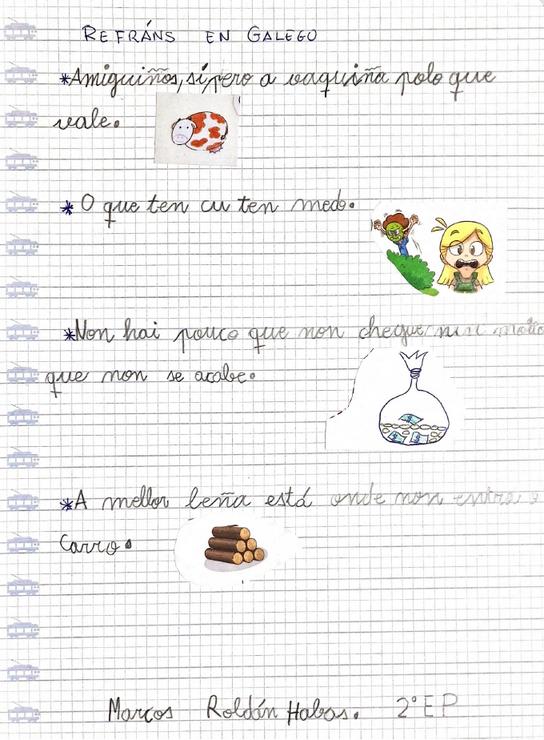 REFRÁNS EN GALEGO
*Amiguiños, sí, pero a vaquiña polo que
vale.
* O que ten cu ten medo.
*Non hai pouco que non chegue nin moito
que non se acabe.
*A mellor leña está onde non entra o
carro.
Marcos Roldán Habas. 2º EP